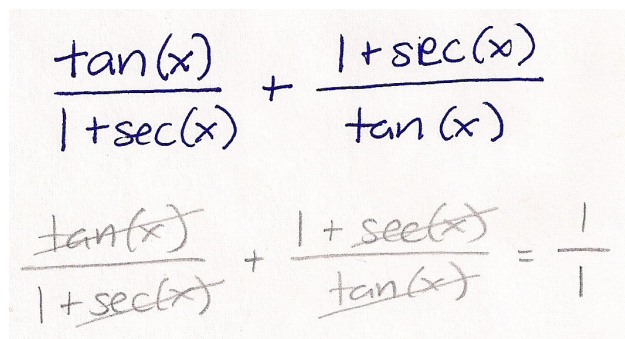 tan(x)/(1+sec(x)) + (1+sec(x))/tan(x)
tan(x)/(1+sec(x)) + (1+sec(x))/tan(x) = 1/1